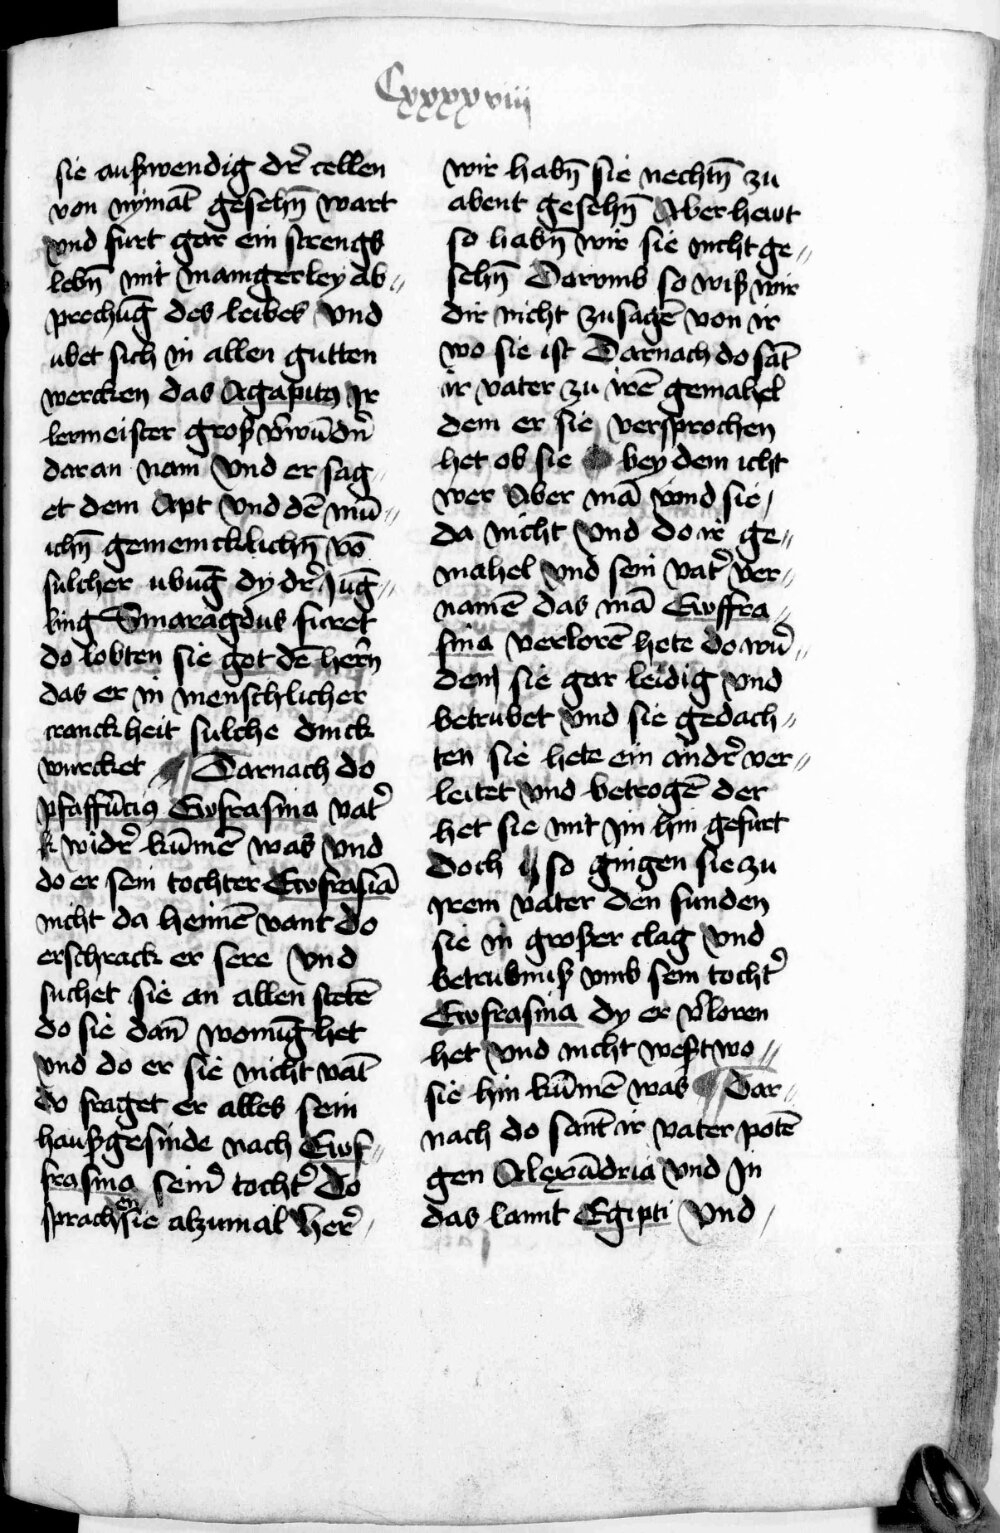 Cxxxxviij
sie außwendig dr̄ cellen
von nymāt gesehn̄ wart
vnd furt gar ein strengs
lebn̄ mit manigerley ab〃
prechūg des leibes Vnd
ubet sich in allen gutten
wercken das Agapitꝯ Ir
lermeister groß v̄wūdn̄
daran nam Vnd er sag
et dem Apt Vnd dē mū〃
ichn̄ gemeincklichn̄ vō
sulcher ubūg dy dr̄ Iūg〃
ling Smaragdus furet
do lobten sie got dē herrn̄
das er in menschlicher
cranckheit sulche dinck
wurcket ¶ Darnach do
pfaffūciꝯ Ewfrasina vatr̄
widr̄ kūmē was Vnd
do er sein tochter Ewfrasiā
nicht da heimē vant do
erschrack er sere Vnd
suchet sie an allen stetē
do sie dan̄ wonūg het
Vnd do er sie nicht vāt
do fraget er alles sein
haußgesinde nach Ewf〃
frasina seinr̄ tochtr̄ Do
sprachen sie alzumal herr̄
wir habn̄ sie nechtn̄ zu
abent gesehn̄ Aber hewt
so habn̄ wir sie nicht ge〃
sehn̄ Darvmb so wiß wir
dir nicht zusagē von ir
wo sie ist Darnach do sāt
ir vater zu irē gemahel
dem er sie versprochen
het ob sie bey dem icht
wer Aber mā vand sie
da nicht Vnd do ir ge〃
mahel Vnd sein vatr̄ ver〃
namē das mā Ewffra〃
sina verlorē hete do wur̄〃
den sie gar leidig Vnd
betrubet Vnd sie gedach〃
ten sie hete ein andr̄ ver〃
leitet Vnd betrogē der
het sie mit im hin gefurt
doch so gingen sie zu
irem vater den funden
sie in großer clag Vnd
betrubnuß vmb sein tochtr̄
Ewfrasina dy er v̄loren
het Vnd nicht west wo〃
sie hin kūmē was ¶ Dar〃
nach do sant̄ ir vater potē
gen Alexādria Vnd In
das lannt Egipti Vnd